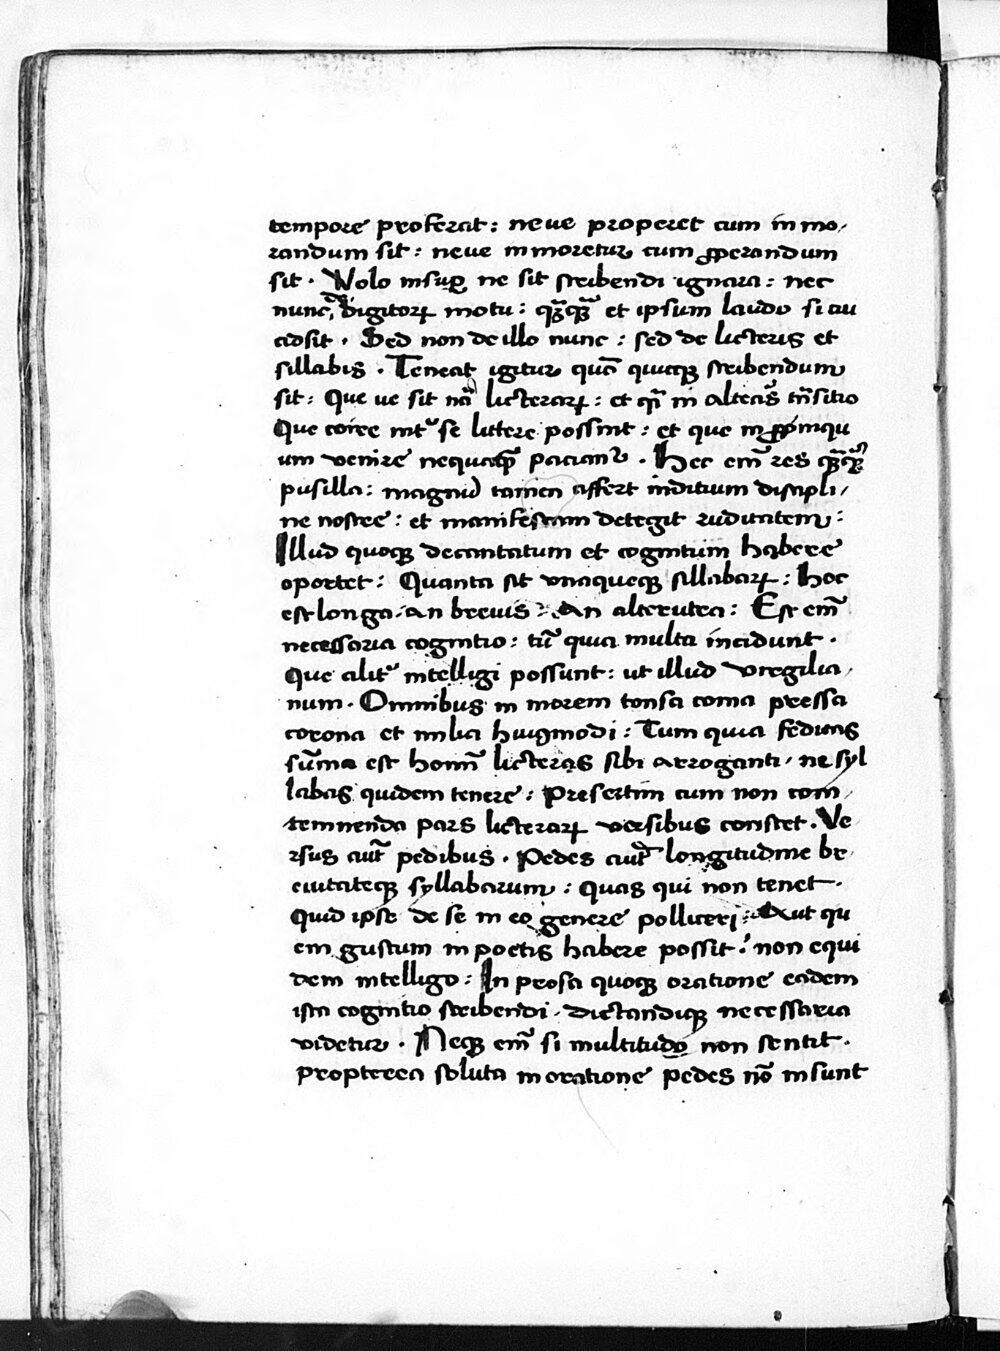 tempore proferat: neue properet cum inmo/
randum sit: neue inmoretur cum ꝓperandum
sit. Volo insuꝑ ne sit scribendi ignara: nec
nunc de digitoꝝ motu: qͣꝙͣ et ipsum laudo si cui
adsit. Sed non de illo nunc: sed de licteris et
sillabis. Teneat igitur quō quicqꝫ scribendum
sit: Que ve sit nāͣ licteraꝝ: et qͣ in alteriꝰ trāsitio
Que coire int͛ se littere possint: et que in ꝓpinqu
um venire nequaqͣ paciant᷑. Hec eīn res qͣꝙͣ
pusilla: magnū tamen affert inditium discipli/
ne nostre: et manifestam detegit ruditatem:
Illud quoqꝫ decantatum et cognitum habere
oportet: Quanta sit vnaqueqꝫ sillabaꝝ: Hoc
est longa. an breuis: An alterutra: Est eīn
necessaria cognitio: tū quia multa incidunt.
Que alit͛ intelligi possunt: ut illud virgilia/
num. Omnibus in morem tonsa coma pressa
corona et milia huiꝰmodi: Tum quia feditas
sūma est homī licteras sibi arroganti. ne syl
labas quidem tenere: Presertim cum non com/
temnenda pars licteraꝝ versibus constet. Ve
rsus aut̄ pedibus. Pedes aut̄ longitudine br
euitateqꝫ syllabarum: Quas qui non tenet.
Quid ipse de se in eo genere polliceri: Aut qu
em gustum in poetis habere possit: non equi
dem intelligo: In prosa quoqꝫ oratione eadem
ista cognitio scribendi. dictandiqꝫ necessaria
videtur. Neqꝫ eīn si multitudo non sentit.
propterea soluta in oratione pedes nō insunt